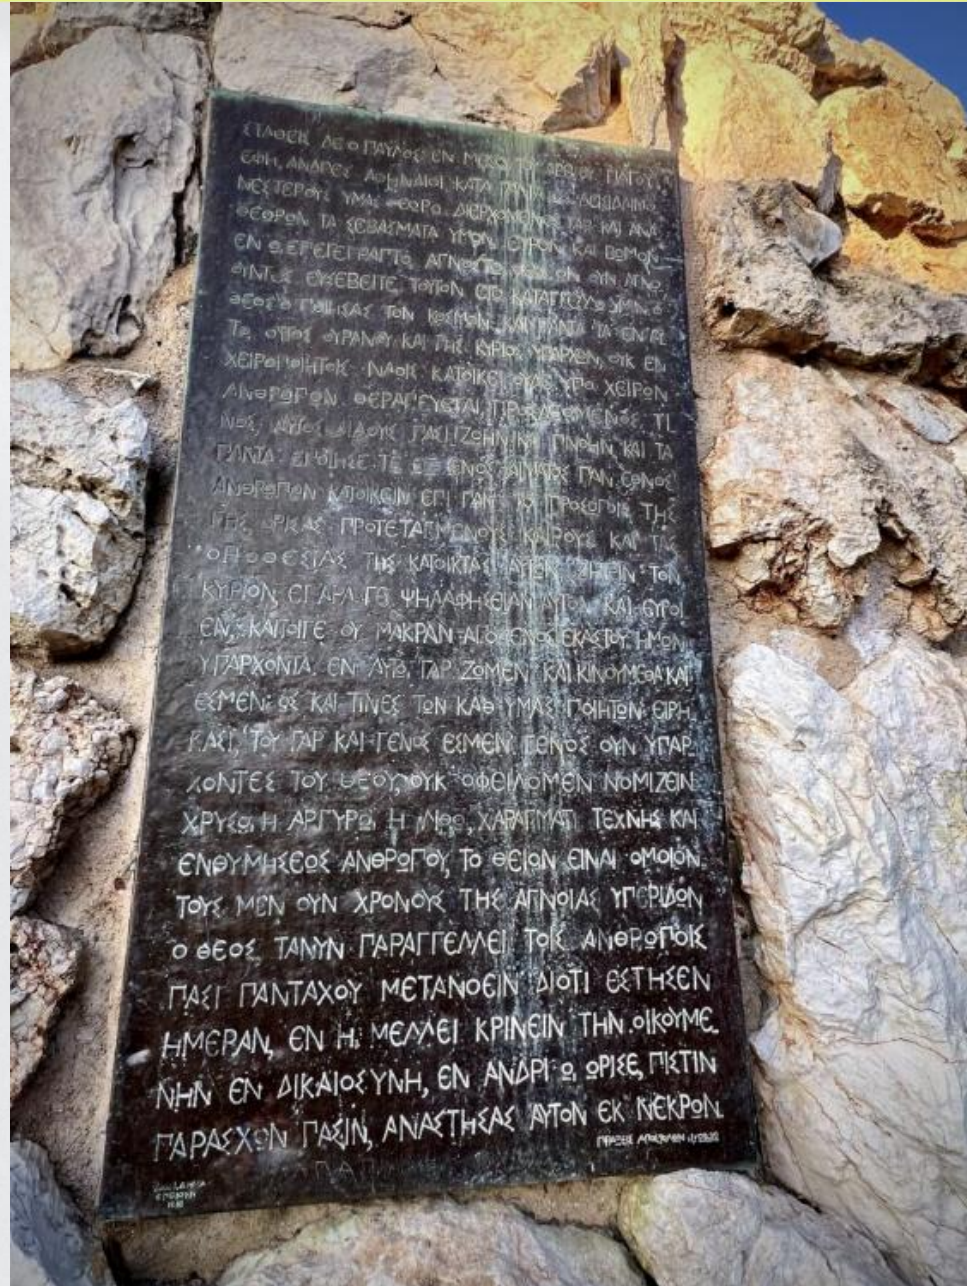 ΣΤΑΘΕΙΣ ΔΕ Ο ΠΑΥΛΟΣ ΕΝ ΜΕΣΩ ΤΟΥ ΑΡΕΙΟΥ ΠΑΓΟΥ
ΕΦΗ, ΑΝΔΡΕΣ ΑΘΗΝΑΙΟΙ ΚΑΤΑ ΠΑΝΤΑ
ΝΕΣΤΕΡΟΥΣ ΥΜΑΣ ΘΕΩΡΩ. ΔΙΕΡΧΟΜΕΝΟΣ ΓΑΡ ΚΑΙ ΑΝΑ
ΘΕΩΡΩΝ ΤΑ ΣΕΒΑΣΜΑΤΑ ΥΜΩΝ ΕΥΡΟΝ ΚΑΙ ΒΩΜΟΝ
ΕΝ Ω ΕΠΕΓΕΓΡΑΠΤΟ, ΑΓΝΩΣΤΩ ΟΝ ΟΥΝ ΑΓΝΟ
ΟΥΝΤΕΣ ΕΥΣΕΒΕΙΤΕ ΤΟΥΤΟΝ ΕΓΩ ΚΑΤΑΓΓΕΛΛΩ ΥΜΙΝ Ο
ΘΕΟΣ Ο ΠΟΙΗΣΑΣ ΤΟΝ ΚΟΣΜΟΝ ΚΑΙ ΠΑΝΤΑ ΤΑ ΕΝ ΑΥ
ΤΩ, ΟΥΤΟΣ ΟΥΡΑΝΟΥ ΚΑΙ ΓΗΣ ΚΥΡΙΟΣ ΥΠΑΡΧΩΝ, ΟΥΚ ΕΝ
ΧΕΙΡΟΠΟΙΗΤΟΙΣ ΝΑΟΙΣ ΚΑΤΟΙΚΕΙ ΟΥΔΕ ΥΠΟ ΧΕΙΡΩΝ
ΑΝΘΡΩΠΩΝ ΘΕΡΑΠΕΥΕΤΑΙ ΠΡΟΣΔΕΟΜΕΝΟΣ ΤΙ
ΝΟΣ, ΑΥΤΟΣ ΔΙΔΟΥΣ ΠΑΣΙ ΖΩΗΝ ΚΑΙ ΠΝΟΗΝ ΚΑΙ ΤΑ
ΠΑΝΤΑ· ΕΠΟΙΗΣΕ ΤΕ ΕΞ ΕΝΟΣ ΑΙΜΑΤΟΣ ΠΑΝ ΕΘΝΟΣ
ΑΝΘΡΩΠΩΝ ΚΑΤΟΙΚΕΙΝ ΕΠΙ ΠΑΝ ΤΟ ΠΡΟΣΩΠΟΝ ΤΗΣ
ΓΗΣ ΟΡΙΣΑΣ ΠΡΟΤΕΤΑΓΜΕΝΟΥΣ ΚΑΙΡΟΥΣ ΚΑΙ ΤΑΣ
ΟΡΟΘΕΣΙΑΣ ΤΗΣ ΚΑΤΟΙΚΙΑΣ ΑΥΤΩΝ ΖΗΤΕΙΝ ΤΟΝ
ΚΥΡΙΟΝ, ΕΙ ΑΡΑ ΓΕ ΨΗΛΑΦΗΣΕΙΑΝ ΑΥΤΟΝ ΚΑΙ ΕΥΡΟΙ
ΕΝ, ΚΑΙΤΟΙΓΕ ΟΥ ΜΑΚΡΑΝ ΑΠΟ ΕΝΟΣ ΕΚΑΣΤΟΥ ΗΜΩΝ
ΥΠΑΡΧΟΝΤΑ. ΕΝ ΑΥΤΩ, ΓΑΡ ΖΩΜΕΝ ΚΑΙ ΚΙΝΟΥΜΕΘΑ ΚΑΙ
ΕΣΜΕΝ· ΩΣ ΚΑΙ ΤΙΝΕΣ ΤΩΝ ΚΑΘ ΥΜΑΣ ΠΟΙΗΤΩΝ ΕΙΡΗ
ΚΑΣΙ, ΤΟΥ ΓΑΡ ΚΑΙ ΓΕΝΟΣ ΕΣΜΕΝ. ΓΕΝΟΣ ΟΥΝ ΥΠΑΡ
ΧΟΝΤΕΣ ΤΟΥ ΘΕΟΥ, ΟΥΚ ΟΦΕΙΛΟΜΕΝ ΝΟΜΙΖΕΙΝ
ΧΡΥΣΩ, Η ΑΡΓΥΡΩ, Η ΛΙΘΩ, ΧΑΡΑΓΜΑΤΙ ΤΕΧΝΗΣ ΚΑΙ
ΕΝΘΥΜΗΣΕΩΣ ΑΝΘΡΩΠΟΥ, ΤΟ ΘΕΙΟΝ ΕΙΝΑΙ ΟΜΟΙΟΝ.
ΤΟΥΣ ΜΕΝ ΟΥΝ ΧΡΟΝΟΥΣ ΤΗΣ ΑΓΝΟΙΑΣ ΥΠΕΡΙΔΩΝ
Ο ΘΕΟΣ ΤΑΝΥΝ ΠΑΡΑΓΓΕΛΛΕΙ ΤΟΙΣ ΑΝΘΡΩΠΟΙΣ
ΠΑΣΙ ΠΑΝΤΑΧΟΥ ΜΕΤΑΝΟΕΙΝ ΔΙΟΤΙ ΕΣΤΗΣΕΝ
ΗΜΕΡΑΝ, ΕΝ Η, ΜΕΛΛΕΙ ΚΡΙΝΕΙΝ ΤΗΝ ΟΙΚΟΥΜΕ
ΝΗΝ ΕΝ ΔΙΚΑΙΟΣΥΝΗ, ΕΝ ΑΝΔΡΙ Ω, ΩΡΙΣΕ, ΠΙΣΤΙΝ
ΠΑΡΑΣΧΩΝ ΠΑΣΙΝ, ΑΝΑΣΤΗΣΑΣ ΑΥΤΟΝ ΕΚ ΝΕΚΡΩΝ.
ΠΡΑΞΕΙΣ ΑΠΟΣΤΟΛΩΝ